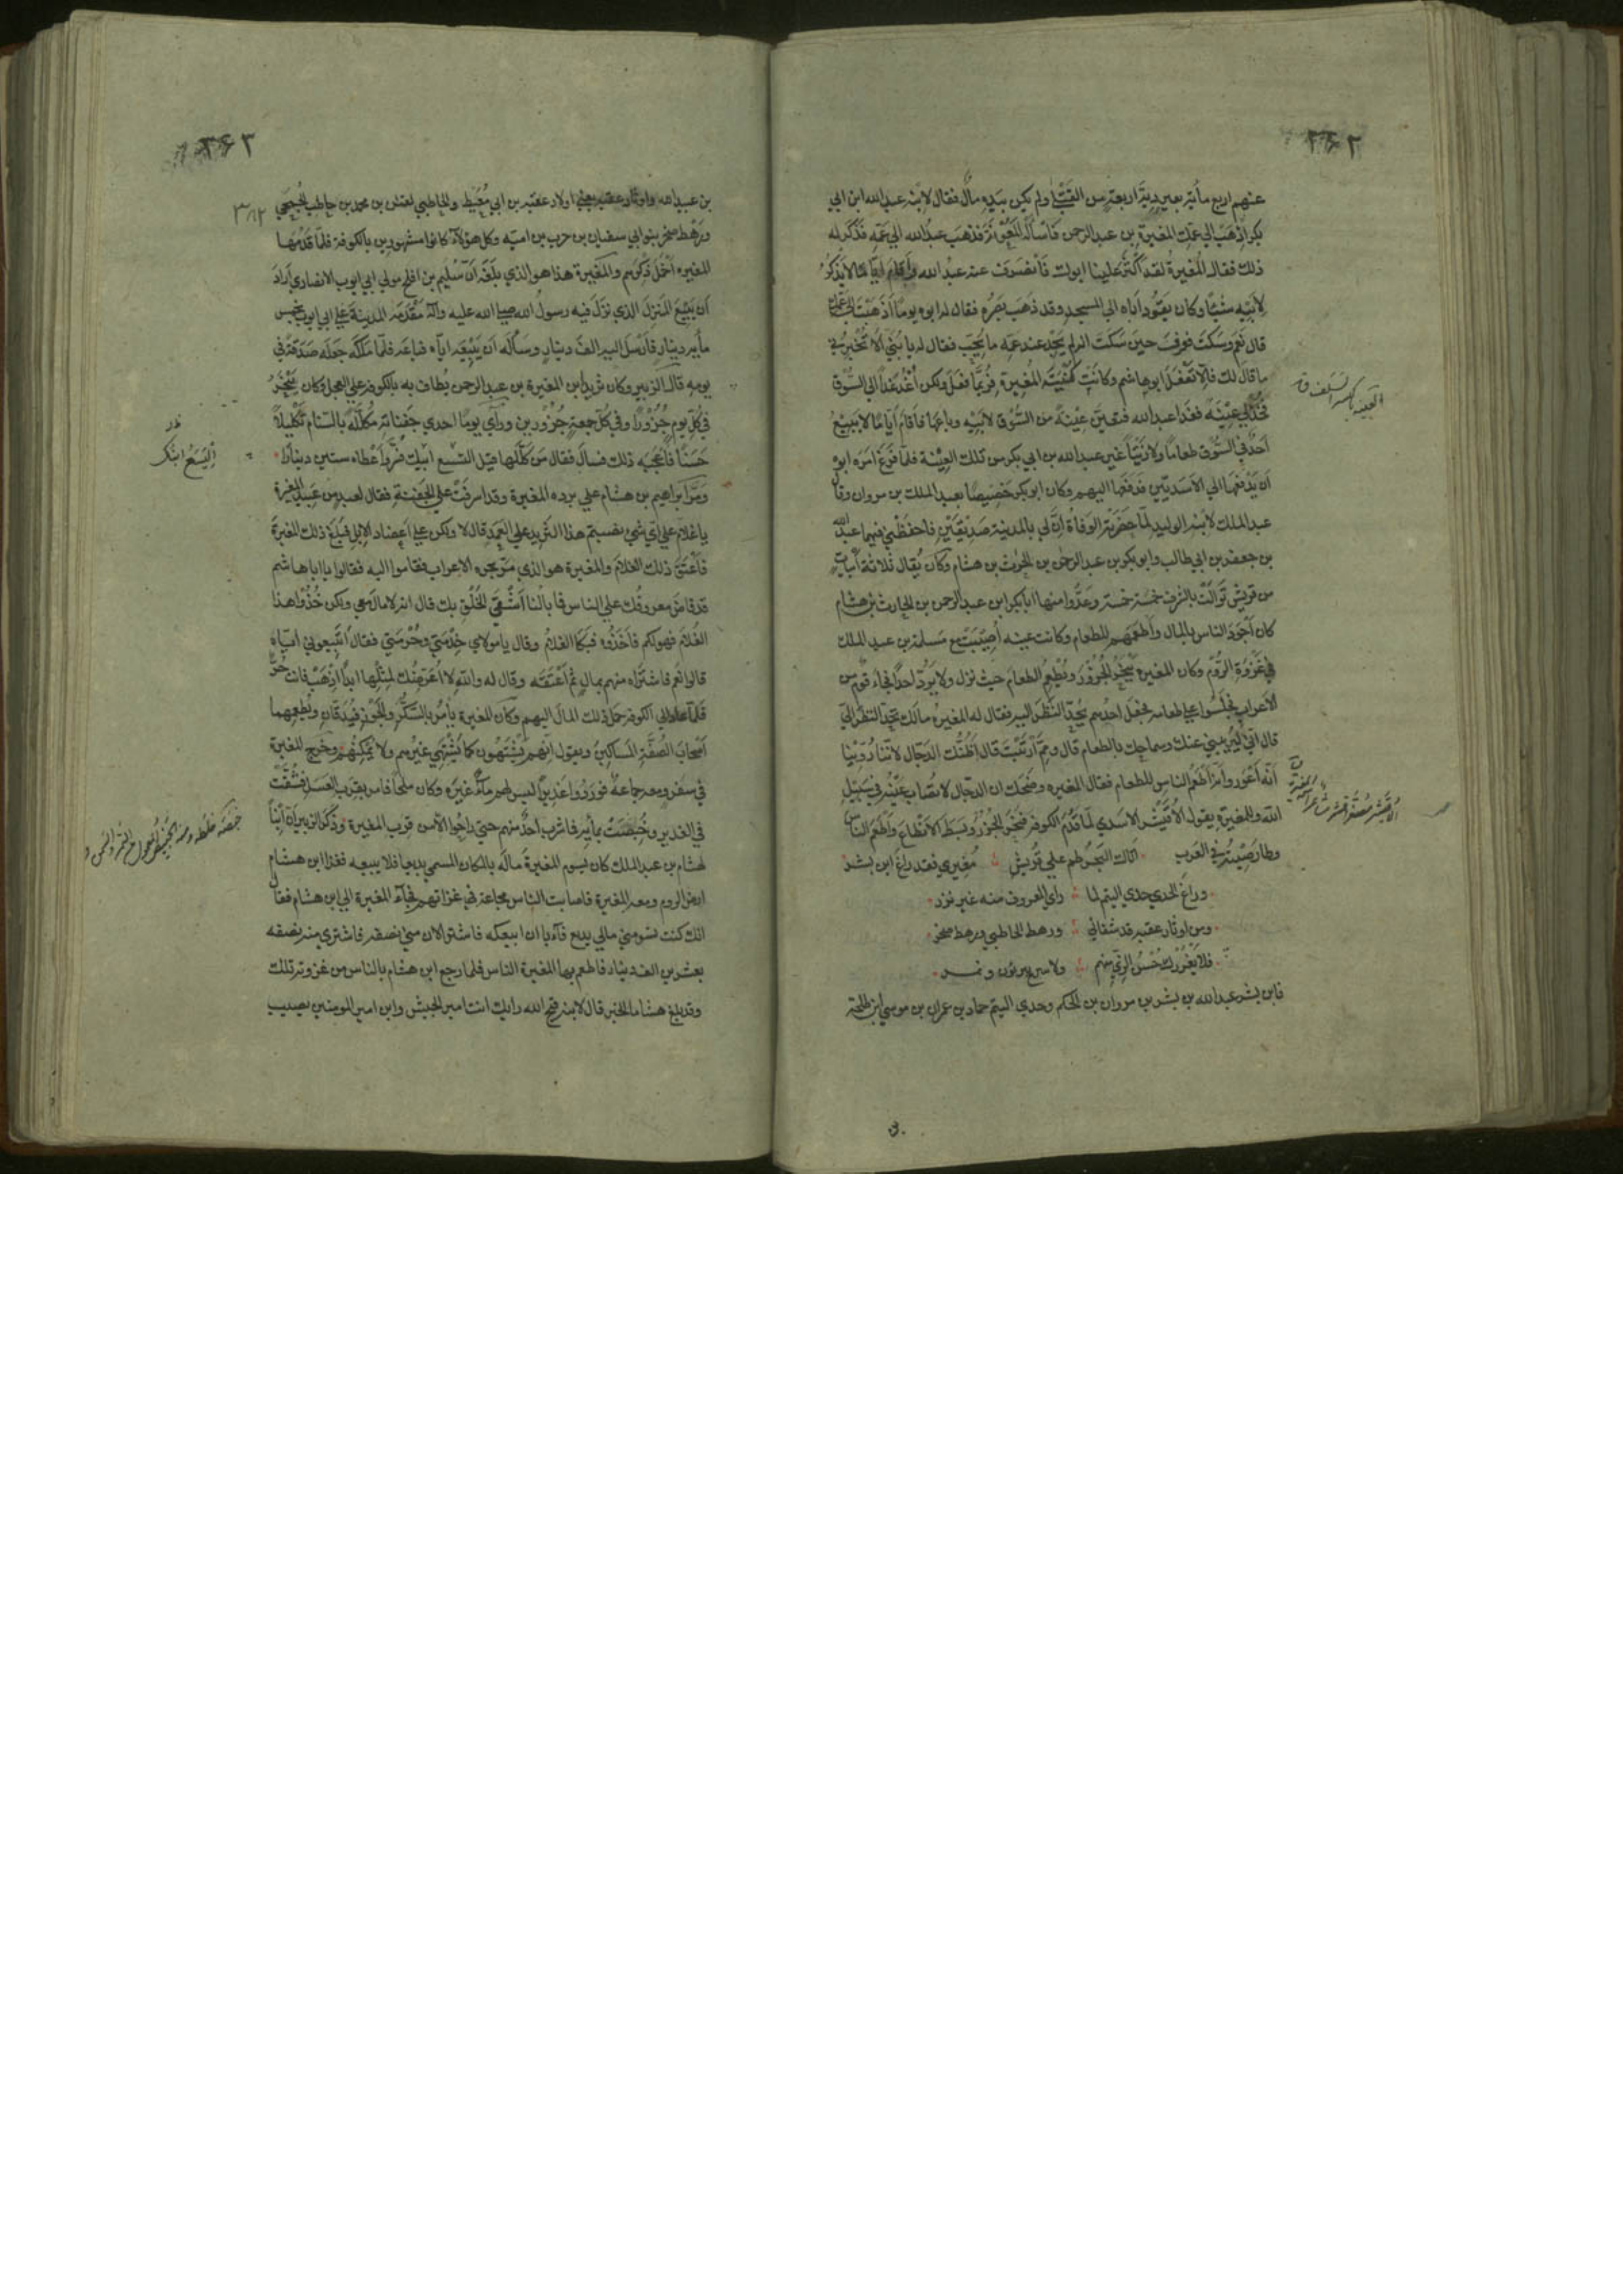 ٢٦٢
عنهم اربع مأية بعير دية اربعة من القتلى ولم يكن بيده مال فقال لابنه عبد الله ابن ابي
بكر اذهب الي عمك المغيرة بن عبد الرحمن فاسأله المعونة فذهب عبد الله الي عمه فذكر له
ذلك فقال المغيرة لقد اكبر علينا ابوك فانصرف عنه عبد الله واقام اياما لا يذكر
لابيه شيئا وكان يقود اباه الي المسجد وقد ذهب بصره فقال له ابوه يوما اذهبت الي عمك
قال نعم وسكت فعرف حين سكت انه لم يجد عند عمه ما يحب فقال له يا بني الا تخبرني
ما قال لك قال لا تفعل ابو هاشم وكانت كنية المغيرة فربما فعل ولكن اغد غدا الي السوق
فخذ لي عينة فغدا عبد الله فتعين عينة من السوق لابيه وباعها فاقام اياما لا يبيع
احد في السوق طعاما ولا زيتا غير عبد الله بن ابي بكر من تلك العينة فلما فرغ امره ابوه
ان يدفعها الي الاسديين فدفعها اليهم وكان ابو بكر خصيصا بعبد الملك بن مروان وقال
عبد الملك لابنه الوليد لما حضرته الوفاة ان لي بالمدينة صديقين فاحفظني فيهما عبد الله
بن جعفر بن ابي طالب وابو بكر بن عبد الرحمن بن الحرث بن هشام وكان يقال ثلاثة ابيات
من قريش توالت بالشرف خمسة خمسة وعدوا منها ابا بكر ابن عبد الرحمن بن الحارث بن هشام
كان اجود الناس بالمال واطعمهم للطعام وكانت عينه اصيبت مع مسلمة بن عبد الملك
في غزوة الروم وكان المغيرة ينحر الجزور ويطعم الطعام حيث نزل ولا يرد احدا فجاء قوم من
الاعراب فجلسوا علي طعامه فجعل احدهم يحد النظر اليه فقال له المغيرة مالك تحد النظر الي
قال اني ليريبني عينك وسماحك بالطعام قال ومم ارتبت قال اظنك الدجال لاننا روينا
انه اعور وانه اطعم الناس للطعام فقال المغيرة وضحك ان الدجال لا تصاب عينه في سبيل
الله وللمغيرة يقول الاقيشر الاسدي لما قدم الكوفة فنحر الجزور وبسط الانطاع واطعم الناس
وطار صيته في العرب اتاك البحر طم علي قريش مغيري فقد راغ ابن بشر
وراغ الجدي جدي التيم لما راي المعروف منه غير نزر
ومن اوتار عقبة قد شفاني ورهط الحاطبي ورهط صخر
فلا يغررك حسن الزي منهم ولا سرح ببزيون ونمر
فابن بشر عبد الله بن بشر بن مروان بن الحكم وجدي التيم حماد بن عمران بن موسي ابن طلحة
٢٦٣
بن عبيد الله واوتار عقبة يعني اولاد عقبة بن ابي معيط والحاطبي لقمان بن محمد بن حاطب الجمحي
ورهط صخر بنو ابي سفيان بن حرب بن امية وكل هؤلاء كانوا مشهورين بالكوفة فلما قدمها
المغيرة اخمل ذكرهم والمغيرة هذا هو الذي بلغه ان سليم بن افلح مولي ابي ايوب الانصاري اراد
ان يبيع المنزل الذي نزل فيه رسول الله صلي الله عليه وآله مقدمه المدينة علي ابي ايوب بخمس
مأية دينار فارسل اليه الف دينار وسأله ان يبيعه اياه فباعه فلما ملكه جعله صدقة في
يومه قال الزبير وكان ثريد ابن المغيرة بن عبد الرحمن يطاف به بالكوفة علي العجل وكان ينحر
في كل يوم جزورا وفي كل جمعة جزورين وراي يوما احدي جفناته مكللة بالسنام تكليلا
حسنا فاعجبه ذلك فسأل فقال من كللها قيل اليسع ابنك فسر واعطاه ستين دينارا
ومر ابراهيم بن هشام علي برده المغيرة وقد اشرفت علي الجفنة فقال لعبد من عبيد المغيرة
يا غلام علي اي شيء نصبتم هذا الثريد علي العمد قال لا ولكن علي اعضاد الابل فبلغ ذلك المغيرة
فاعتق ذلك الغلام والمغيرة هو الذي مر بحرة الاعراب فقاموا اليه فقالوا يا ابا هاشم
قد فاض معروفك علي الناس فما بالنا اشقي الخلق بك قال انه لا مال معي ولكن خذوا هذا
الغلام فهو لكم فاخذوه فبكا الغلام وقال يا مولاي خدمتي وحرمتي فقال اتبيعوني اياه
قالوا نعم فاشتراه منهم بمال ثم اعتقه وقال له والله لا اعرضك لمثلها ابدا اذهب فانت حر
فلما عاد الي الكوفة حمل ذلك المال اليهم وكان المغيرة يأمر بالسكر والجوز فيدقان ويطعمهما
اصحاب الصفة المساكين ويقول انهم يشتهون كما يشتهي غيرهم ولا يمكنهم وخرج المغيرة
في سفر ومعه جماعة فوردوا غديرا ليس لهم ماء غيره وكان ملحا فامر بقرب العسل فشقت
في الغدير وخيضت بمائه فما شرب احد منهم حتي راحوا الا من قرب المغيرة وذكر الزبير ان ابنا
لهشام بن عبد الملك كان يسوم المغيرة ماله بالمكان المسمي بديعا فلا يبيعه فغزا ابن هشام
ارض الروم ومعه المغيرة فاصابت الناس مجاعة في غزاتهم فجاء المغيرة الي ابن هشام فقال
انك كنت تسومني مالي ببديع فآبي ان ابيعكه فاشتر الان مني نصفه فاشتري منه نصفه
بعشرين الف دينار فاطعم بها المغيرة الناس فلما رجع ابن هشام بالناس من غزوته تلك
وقد بلغ هشاما الخبر قال لابنه قبح الله رايك انت امير الجيش وابن امير المومنين يصيب
اليسع ابنك